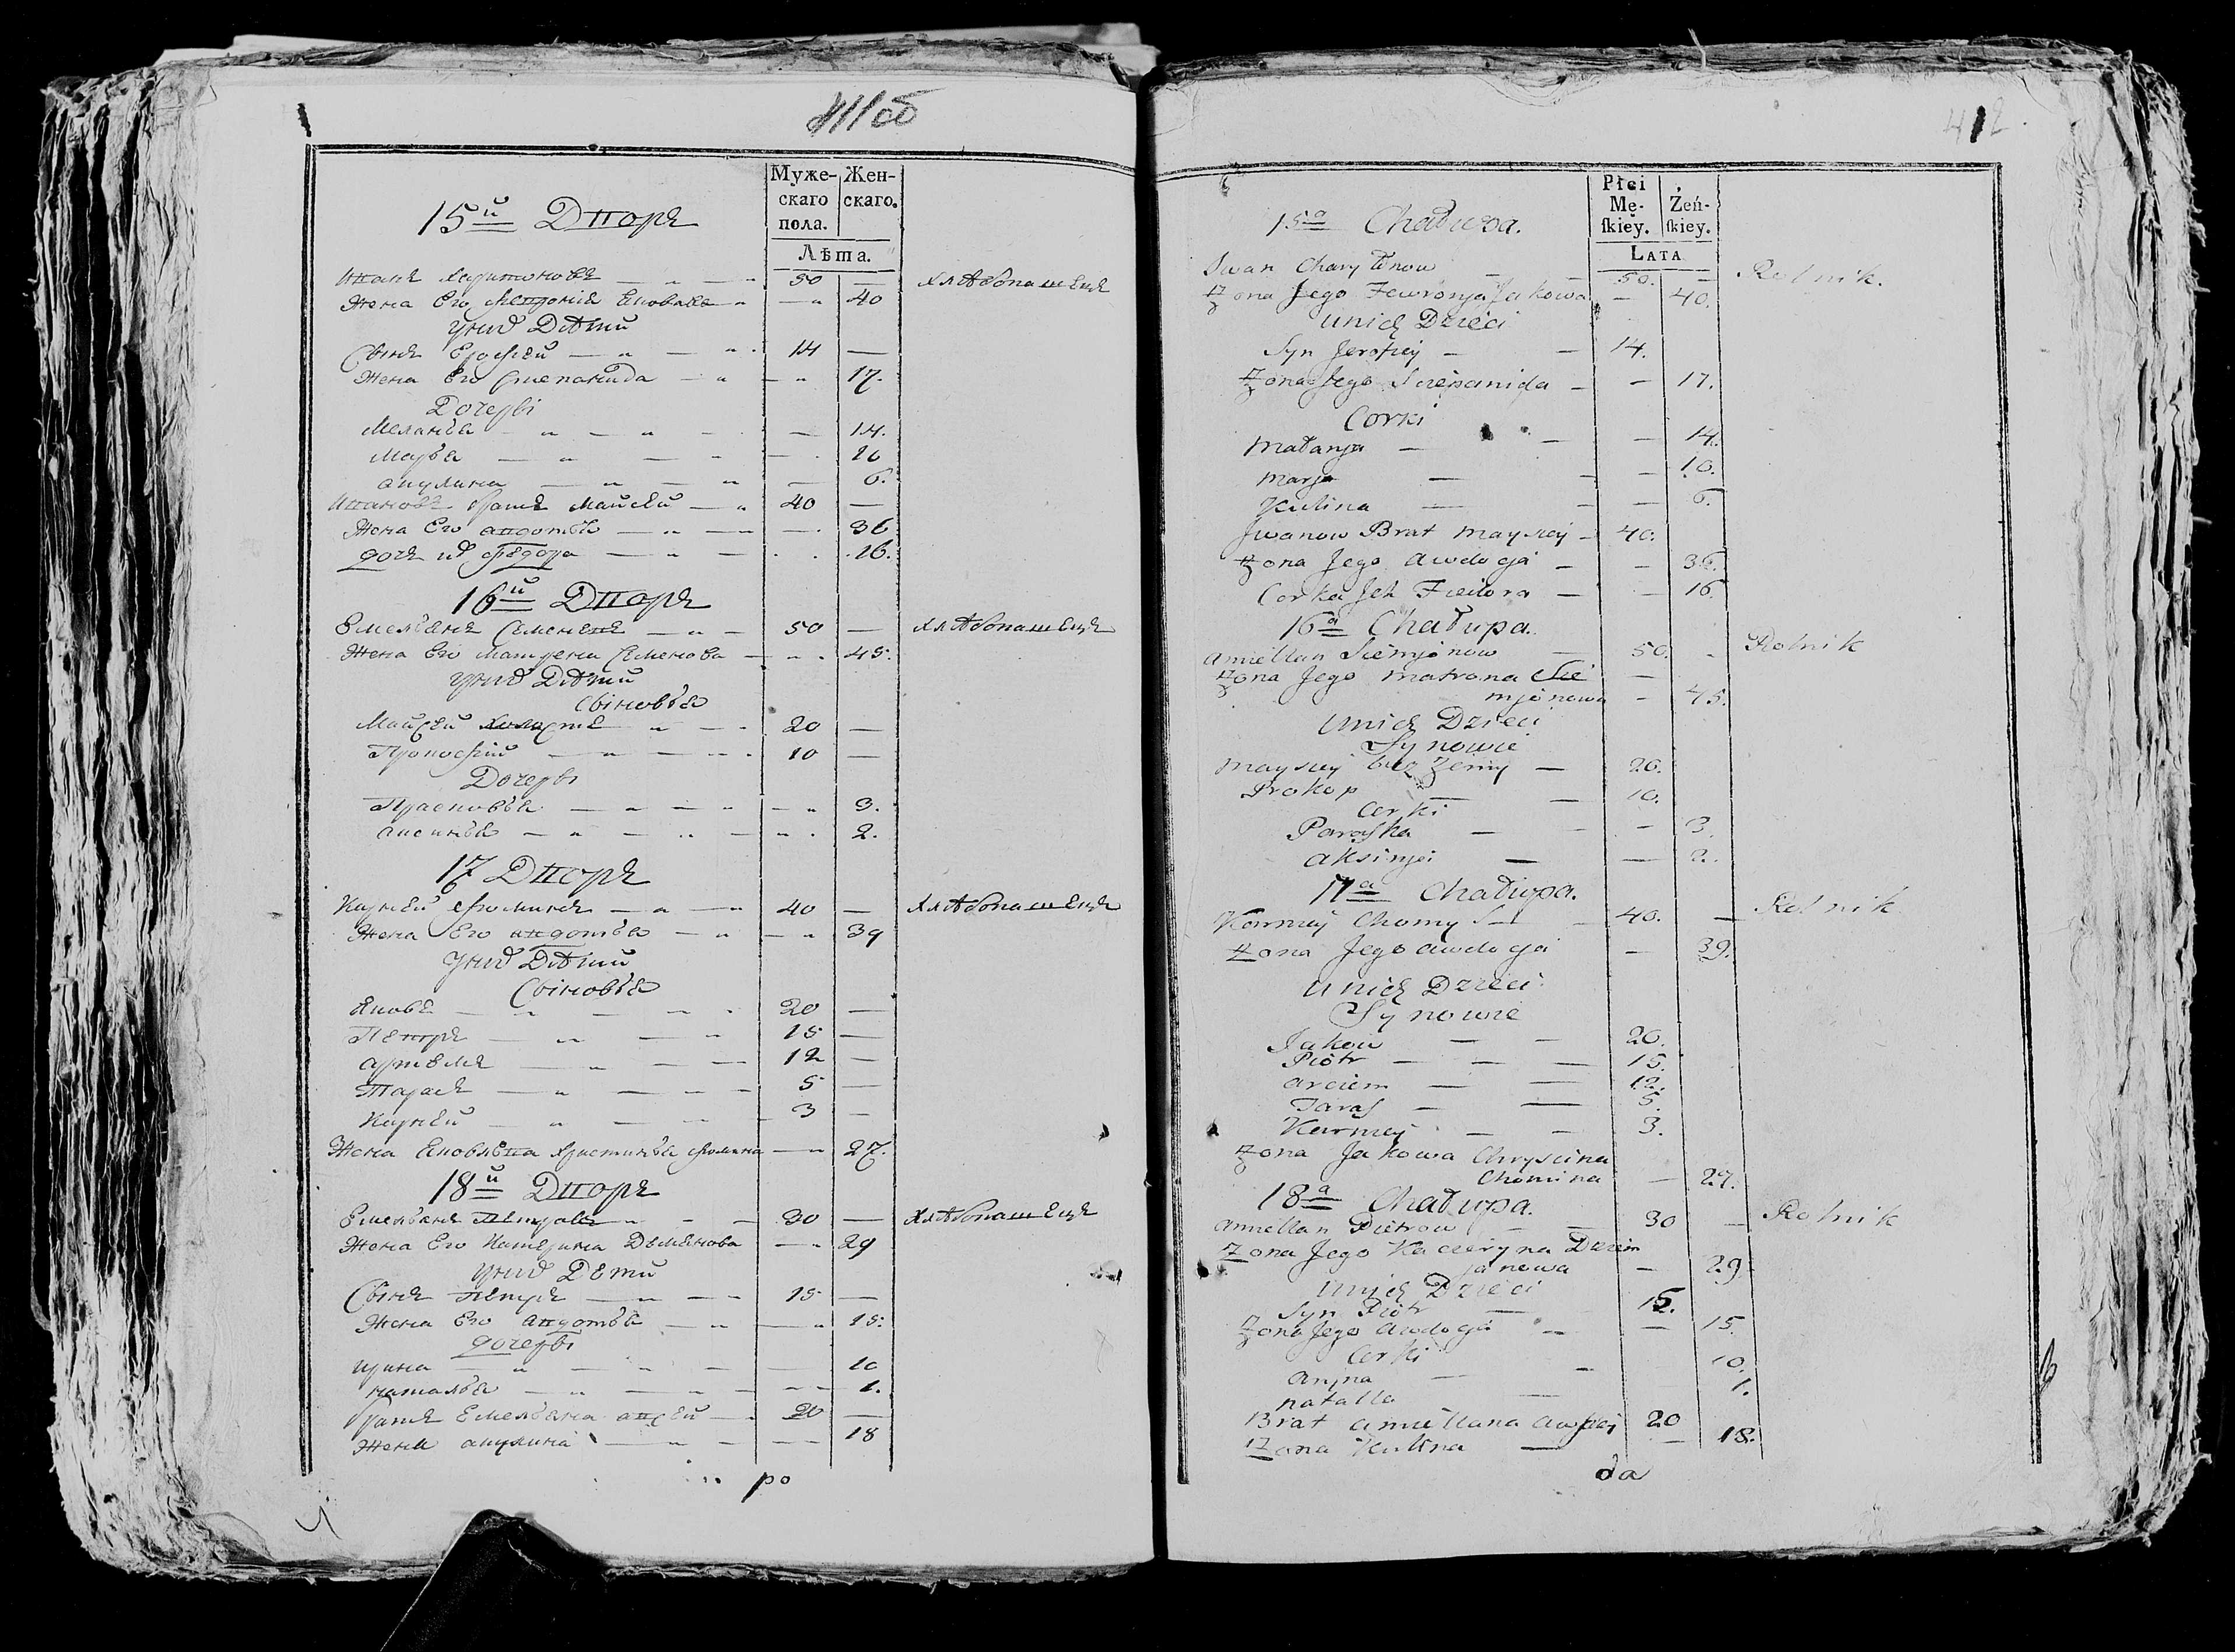 411 об
Муже-
скаго
пола.
Жен-
скаго.
Лѣта.
15й Дворъ
Иванъ Харитоновъ — 50 — Хлѣбопашецъ
Жена Его Яковлева — 40
У них Дѣти
Сынъ Ерофей — 14 —
Жена Его Степанида — 17.
Дочери
Меланья — 14.
Марья — 10
Акулина — 6.
Ивановъ братъ Майсей — 40 —
Жена Его Авдотья — 36
дочь их Федора — 16.
16й Дворъ
Емельянъ Семеневъ — 50 — Хлѣбопашецъ
Жена Его Матрена Семенова — 45.
У них Дѣти
Сыновья
Майсей холостъ — 20 —
Прокофий — 10 —
Дочери
Прасковья — 3.
Аксинья — 2.
17 Дворъ
Карней Фоминъ — 40 — Хлѣбопашецъ
Жена Его Авдотья — 39
У них Дѣти
Сыновья
Яковъ — 20 —
Петръ — 15 —
Артемъ — 12 —
Тарасъ — 5 —
Карней — 3 —
Жена Яковлева Христинья Фомина — 27.
18й Дворъ
Емельянъ Петровъ — 30 — Хлѣбопашецъ
Жена Его Катерина Демьянова — 29
У них Дети
Сынъ Петръ — 15 —
Жена Его Авдотья — 15.
дочери
Ирина — 10
Наталья — 1.
братъ Емельяна Авсей — 20 —
Жена Акулина — 18
ро
412.
Płci
Mę-
ſkiey.
Żeń-
ſkiey.
LATA
15a Chałupa.
Iwan Charytonow — 50. — Rolnik.
Żona Jego Fewronja Jakowa — 40.
U nich Dzieci
Syn Jerofiey — 14.
Żona Jego Sciepanida — 17.
Corki
Małanja — 14.
Marja — 10.
Kulina — 6.
Jwanow Brat Maysiey — 40.
Żona Jego Awdocja — 36.
Corka Jch Fiedora — 16.
16a Chałupa.
Amiellan Siemjonow — 50. — Rolnik
Żona Jego Matrona Sie
mjonowa — 45.
U nich Dzieci
Synowie
Maysiey bez Żeny — 20.
Prokop — 10.
Corki
Paraſka — 3.
Aksinja — 2.
17a Chałupa.
Karniey Chomy S — 40. — Rolnik
Żona Jego Awdocja — 39.
U nich Dzieci
Synowie
Jakow — 20.
Piotr — 15.
Arciem — 12.
Taraſ — 5.
Karniey — 3.
Żona Jakowa Chryscina
Chomina — 27.
18a Chałupa.
Amiellan Pietrow — 30 — Rolnik
Żona Jego Kacieryna Dziem
janowa — 29.
U nich Dzieci
Syn Piotr — 15.
Żona Jego Awdocja — 15.
Corki
Anjna — 10.
Natalla — 1.
Brat Amiellana Awſiey 20
Żona Kulina — 18.
da